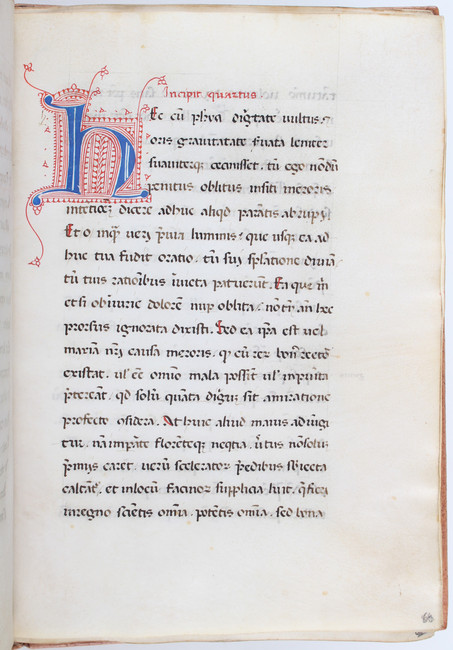 Incipit quartus
hEc cū phya dignitate uultus ⁊
oris grauitate ẜuata leniter
suauiterqʒ cecinisset. tū ego nōdū
penitus oblitus insiti meroris
intētioēʒ dicere adhuc aliqd parātis abrupy.
Et o inqʒ uery p̄uia luminis. que usqʒ ad
huc tua fudit oratio. tū suy sp̄latione diuīa
tū tuis ratiōibus īuicta patuerūt. Ea que m̄
etsi ob iniurie dolorē nup oblita. nō tn̄ an hec
prorsus ignorata dixisti. Sed ea ip̄a est uel
maxia nr̄i causa meroris. qʒ cū reʒ bonꝰ rector
existat. ul̓ eē omnīo mala possīt ul̓ īmpunita
p̄tereāt. qd solū quāta dignūʒ sit amiratione
profecto ɔsideras. At huic aliud maius adiūgi
tur. nā impāte florēteqʒ neqtia. uirtus nōsolū
p̄mijs caret. uerū sceleratoʒ pedibus sbiecta
calcat᷑. et inlocū facinoʒ supplicia luit. q̄ fieri
inregno sciētis omīa. potētis omīa. sed bona
68